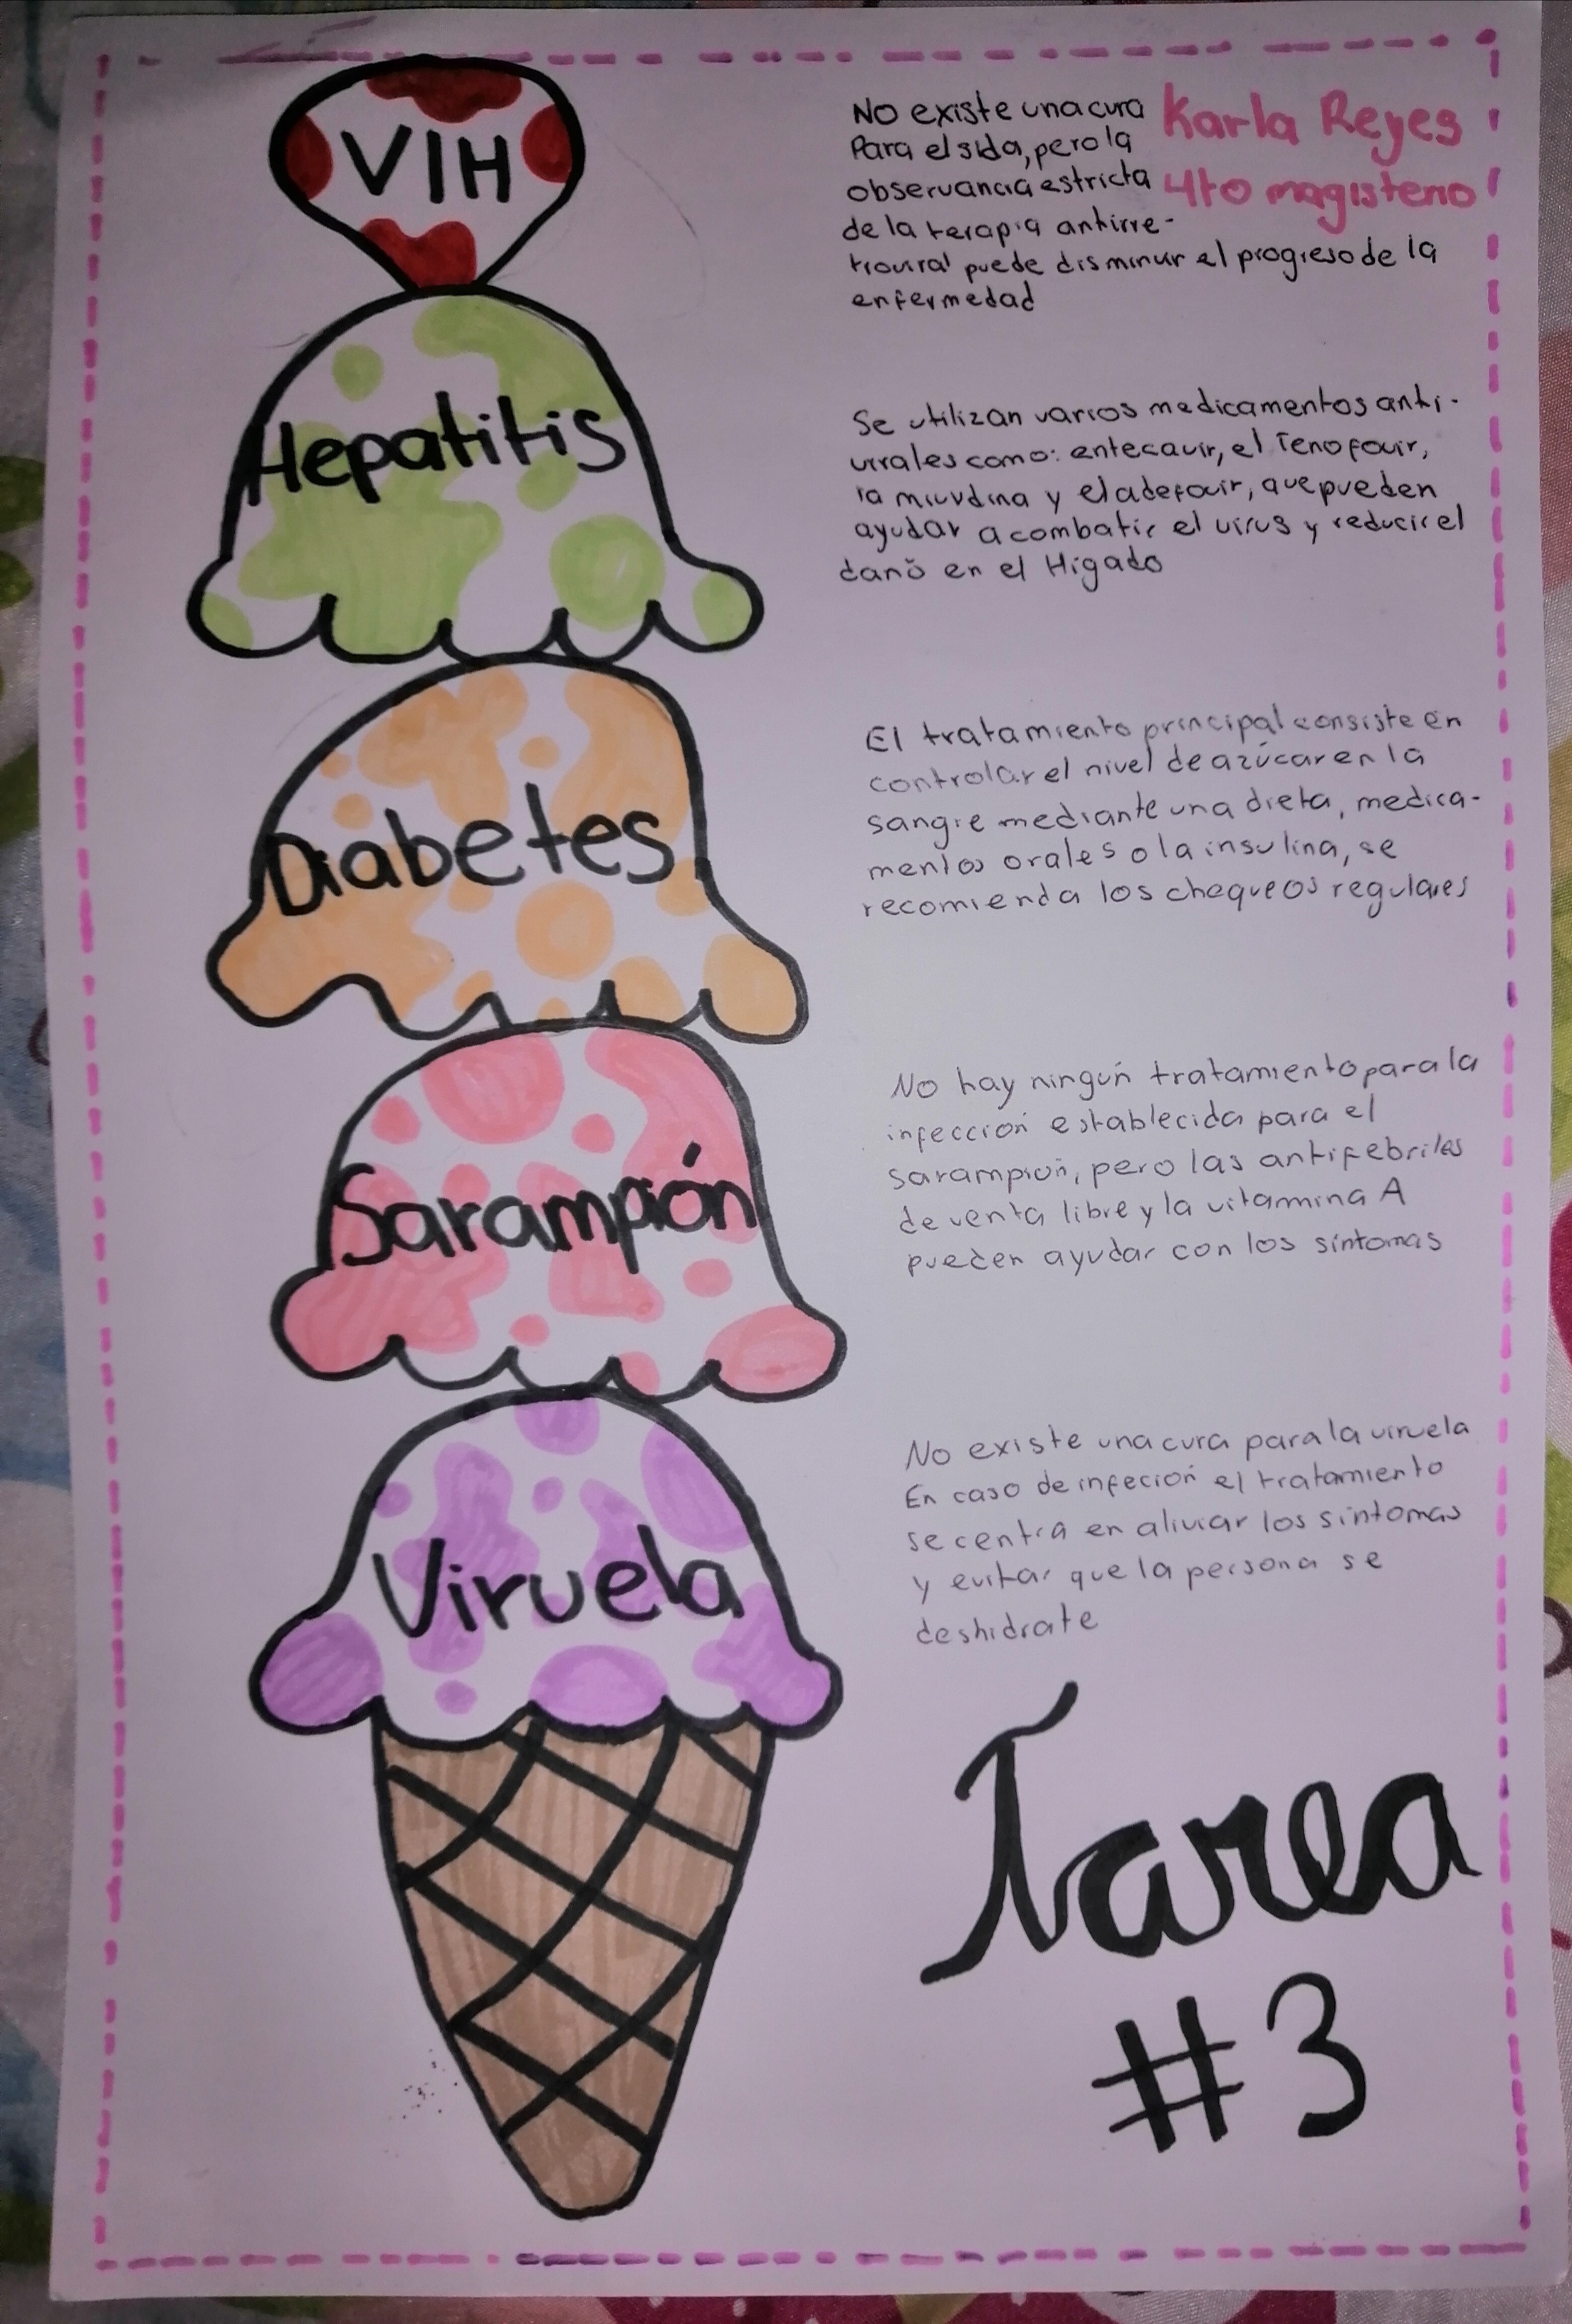 VIH
No existe una cura
Para el sida, pero la
observancia estricta
de la terapia antirre-
troviral puede disminuir el progreso de la
enfermedad
Karla Reyes
4to magisterio
Hepatitis
Se utilizan varios medicamentos anti-
virales como: entecavir, el Tenofovir,
la mivudina y el adefovir, que pueden
ayudar a combatir el virus y reducir el
danõ en el Higado
Diabetes
El tratamiento principal consiste en
controlar el nivel de azúcar en la
sangre mediante una dieta, medica-
mentos orales o la insulina, se
recomienda los chequeos regulares
Sarampión
No hay ningún tratamiento para la
infección establecida para el
sarampión, pero las antifebriles
de venta libre y la vitamina A
pueden ayudar con los síntomas
Viruela
No existe una cura para la viruela
En caso de infeción el tratamiento
se centra en aliviar los síntomas
y evitar que la persona se
deshidrate
Tarea
#3